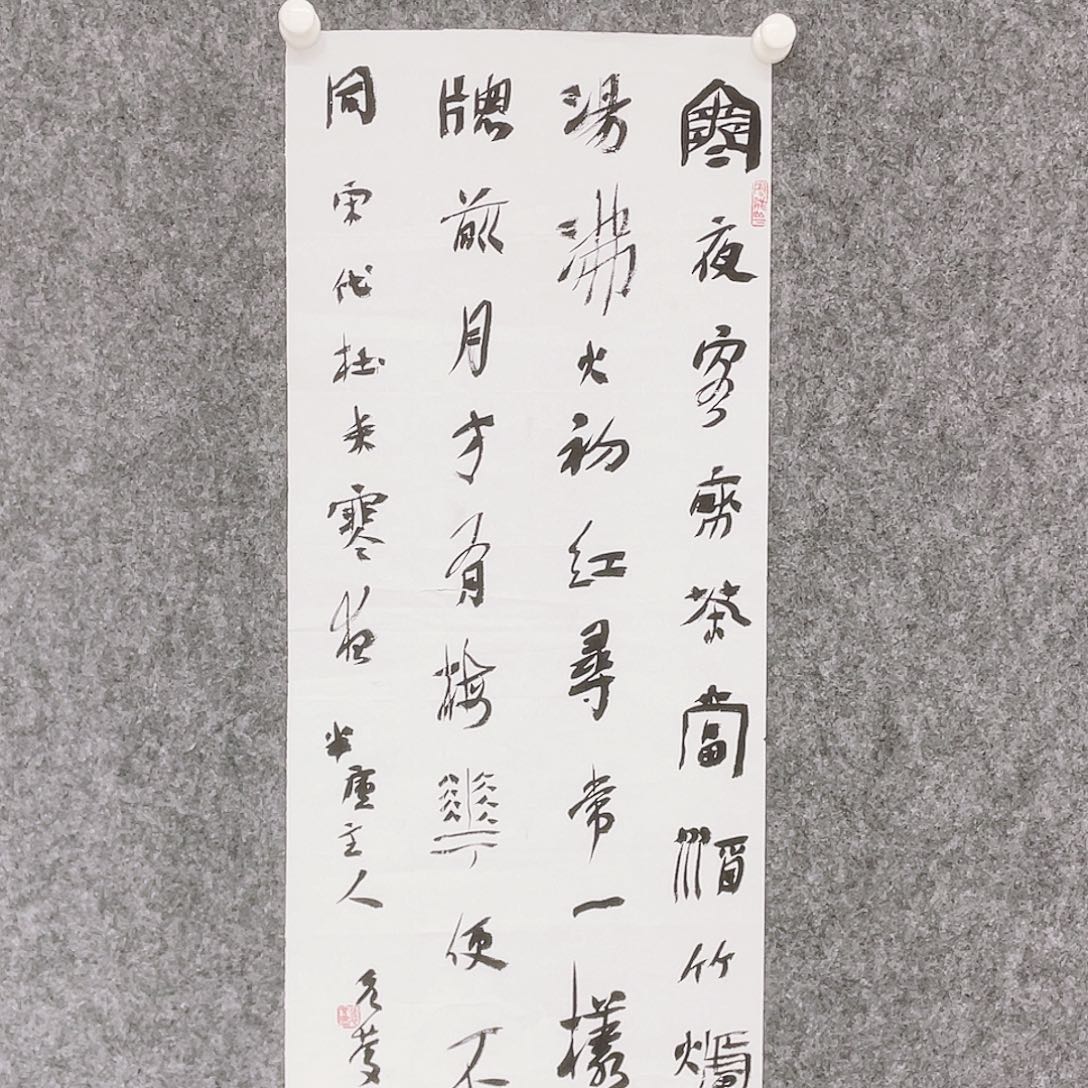 寒夜客茶當酒竹爐
湯沸火初紅尋常一樣
牕前月才有梅華便不
同宋代杜耒寒夜半主人